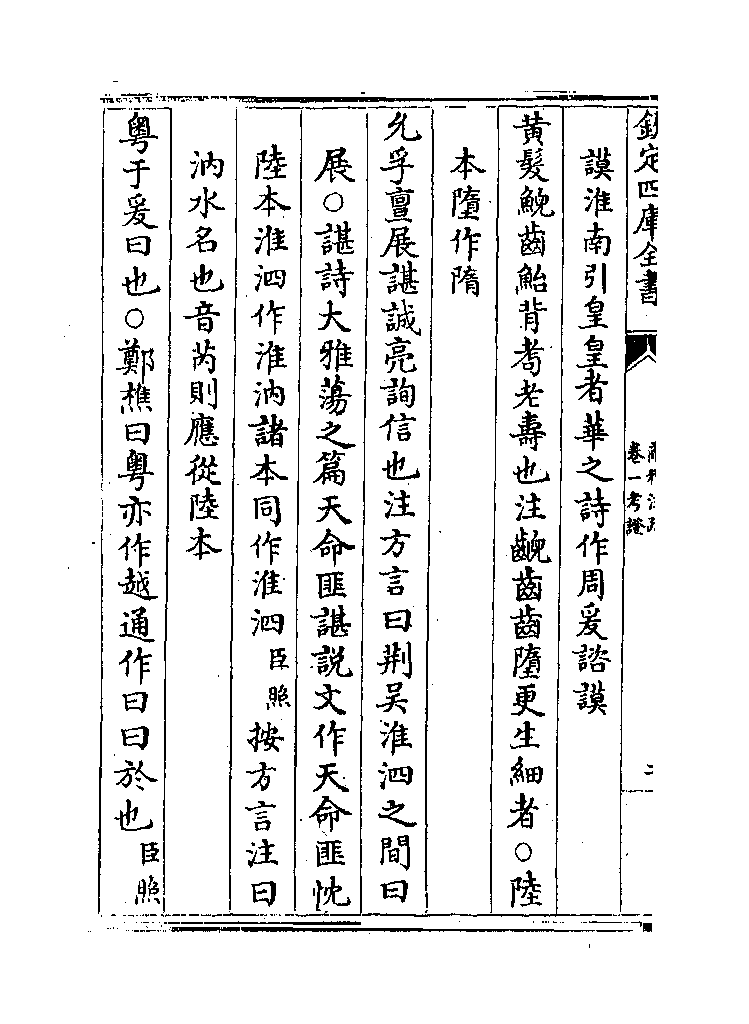 欽定四庫全書
爾雅注疏
卷一考證
二
謨淮南引皇皇者華之詩作周爰諮謨
黄髮鯢齒鮐背耇老壽也注齯齒齒墮更生細者○陸
本墮作隋
允孚亶展諶誠亮詢信也注方言曰荆吴淮泗之間曰
展○諶詩大雅蕩之篇天命匪諶説文作天命匪忱
陸本淮泗作淮汭諸本同作淮泗臣照按方言注曰
汭水名也音芮則應從陸本
粤于爰曰也○鄭樵曰粤亦作越通作曰曰於也臣照